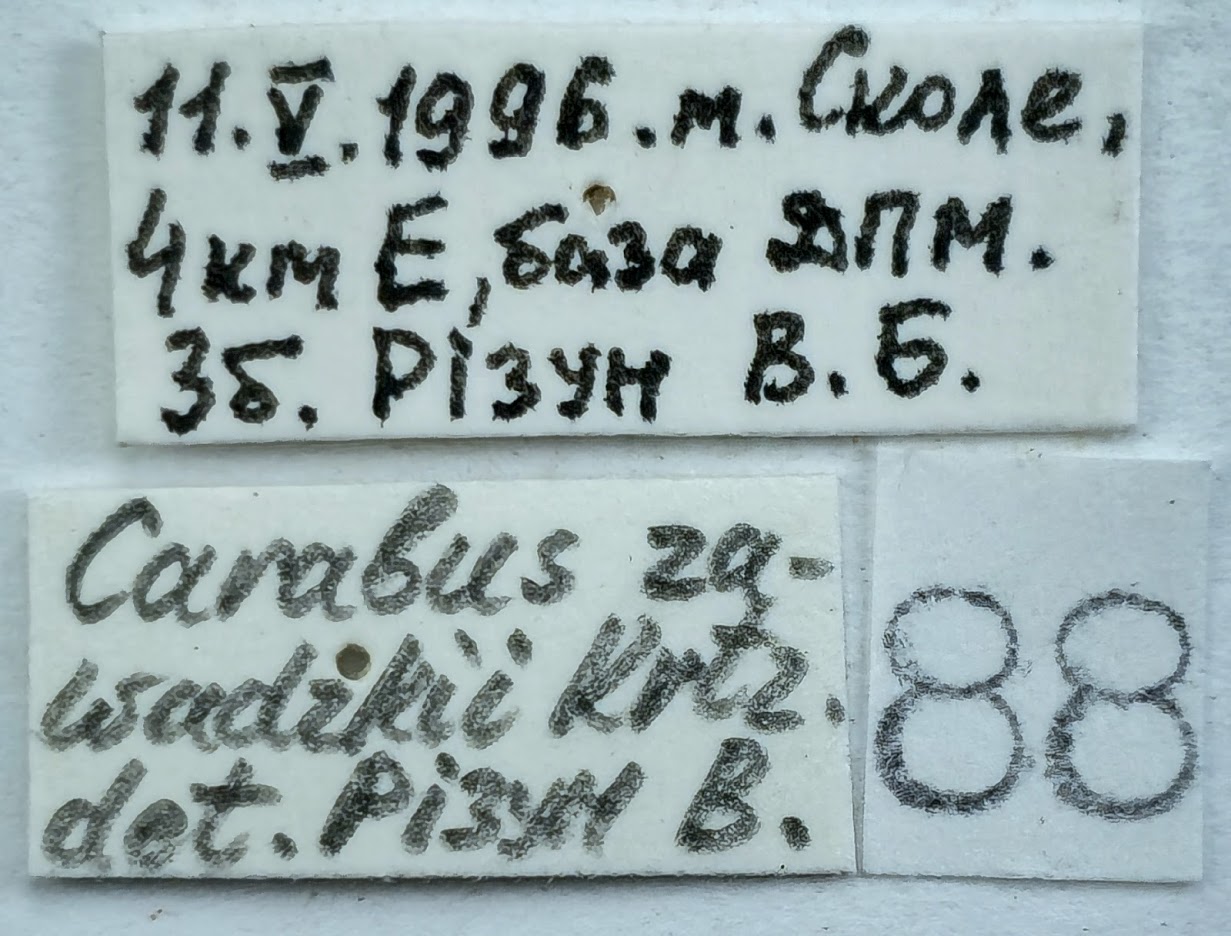 11.V.1996.м. Сколе,
4км E, база ДПМ.
Зб. Різун В. Б.
Carabus za-
wadzkii Krtz.
det. Різун В.
88